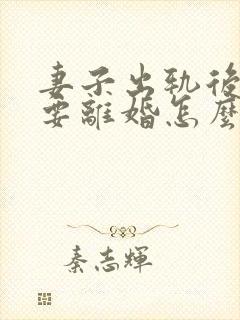 妻子出軌後
要離婚怎麼
秦志輝